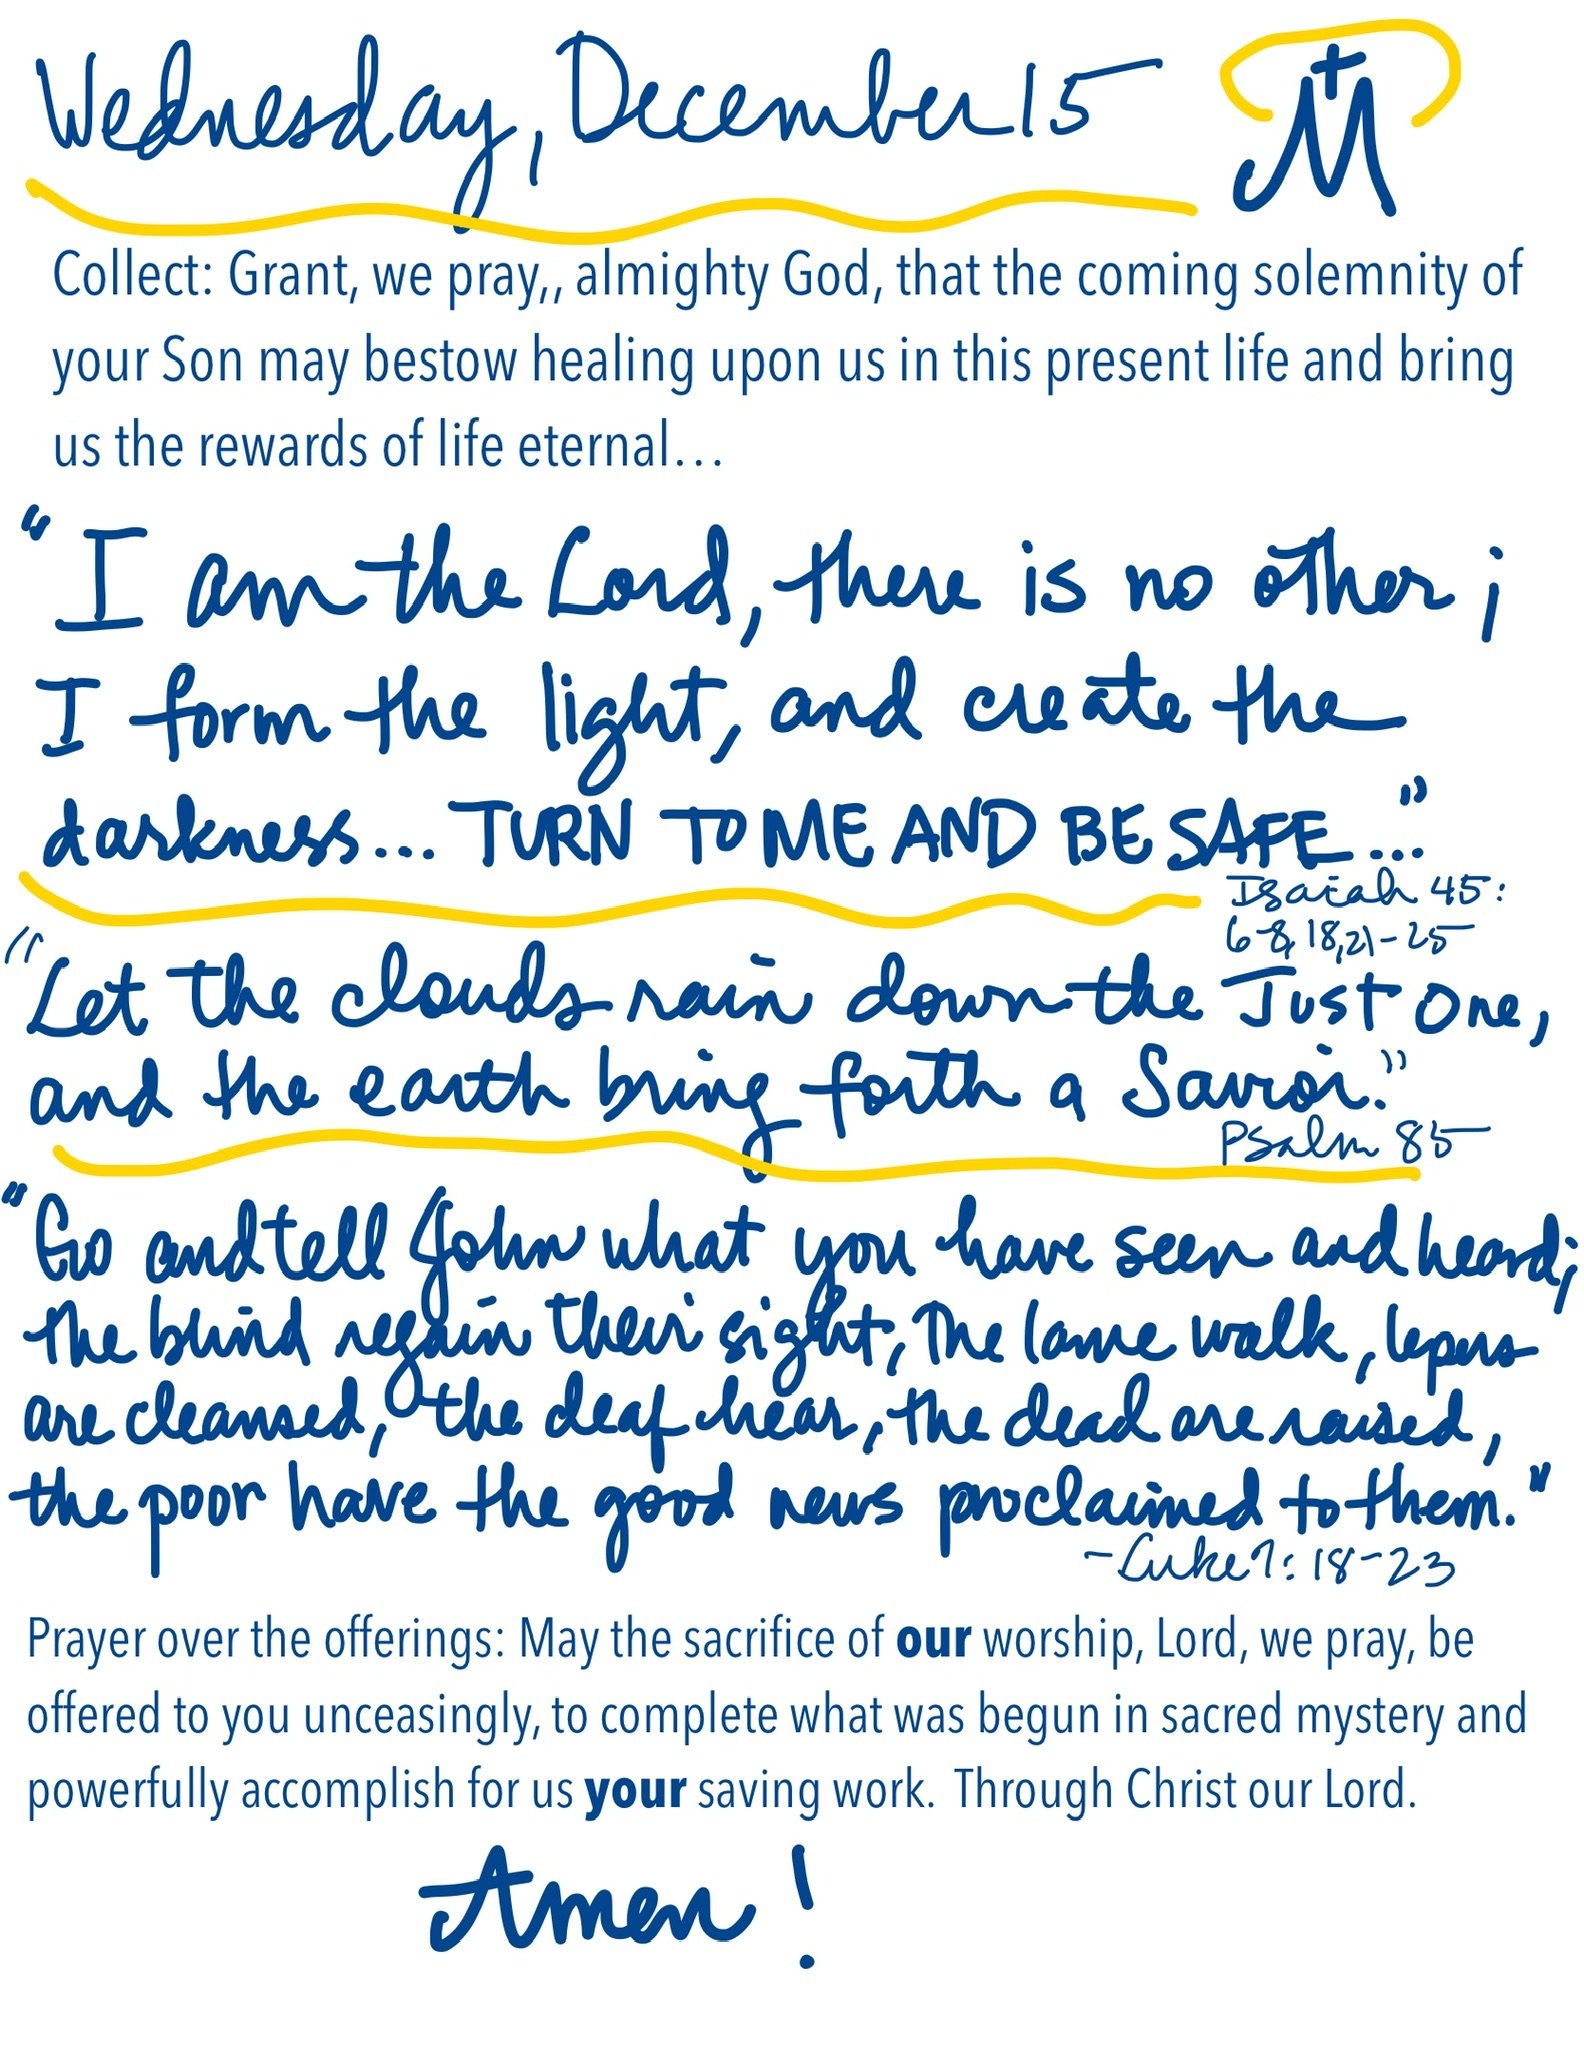 Wednesday, December 15
M
Collect: Grant, we pray,, almighty God, that the coming solemnity of
your Son may bestow healing upon us in this present life and bring
us the rewards of life eternal...
"I am the Lord, there is no other;
I form the light, and create the
darkness... TURN TO ME AND BE SAFE..."
Isaiah 45:
6-8, 18, 21-25
"Let the clouds rain down the Just One,
and the earth bring forth a Savior."
Psalm 85
"Go and tell John what you have seen and heard;
the blind regain their sight, the lame walk, lepers
are cleansed, the deaf hear, the dead are raised,
the poor have the good news proclaimed to them."
-Luke 7:18-23
Prayer over the offerings: May the sacrifice of our worship, Lord, we pray, be
offered to you unceasingly, to complete what was begun in sacred mystery and
powerfully accomplish for us your saving work. Through Christ our Lord.
Amen!